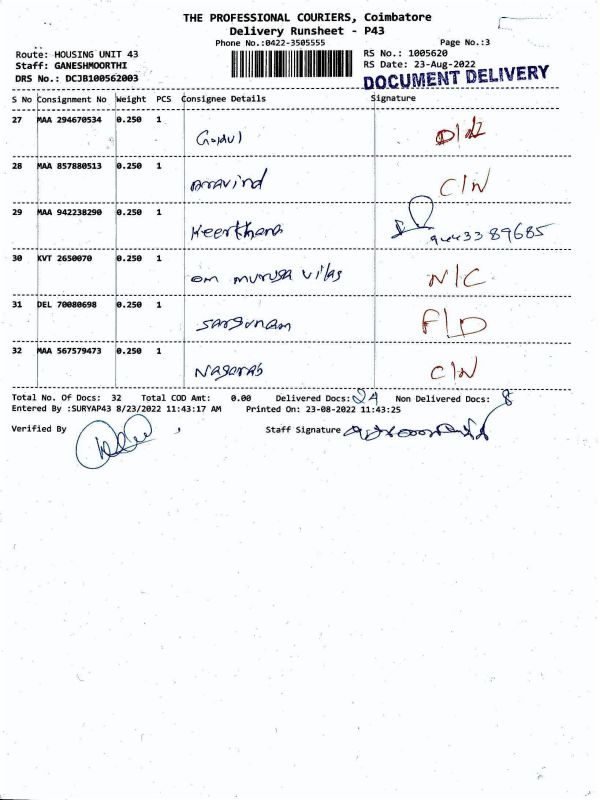 THE PROFESSIONAL COURIERS, Coimbatore
Delivery Runsheet - P43
Phone No.:0422-3505555 Page No.:3
Route: HOUSING UNIT 43 RS No.: 1005620
Staff: GANESHMOORTHI RS Date: 23-Aug-2022
DRS No.: DCJB100562003 DOCUMENT DELIVERY
S No Consignment No Weight PCS Consignee Details Signature
27 MAA 294670534 0.250 1
Gokul
28 MAA 857880513 0.250 1
Aravind C/N
29 MAA 942238290 0.250 1
Keerthana
30 KVT 2650070 0.250 1
om muruga vilas N/C
31 DEL 70080698 0.250 1
Sargunam F/D
32 MAA 567579473 0.250 1
Nagaraj C/N
Total No. Of Docs: 32 Total COD Amt: 0.00 Delivered Docs: 24 Non Delivered Docs: 8
Entered By :SURYAP43 8/23/2022 11:43:17 AM Printed On: 23-08-2022 11:43:25
Verified By Staff Signature